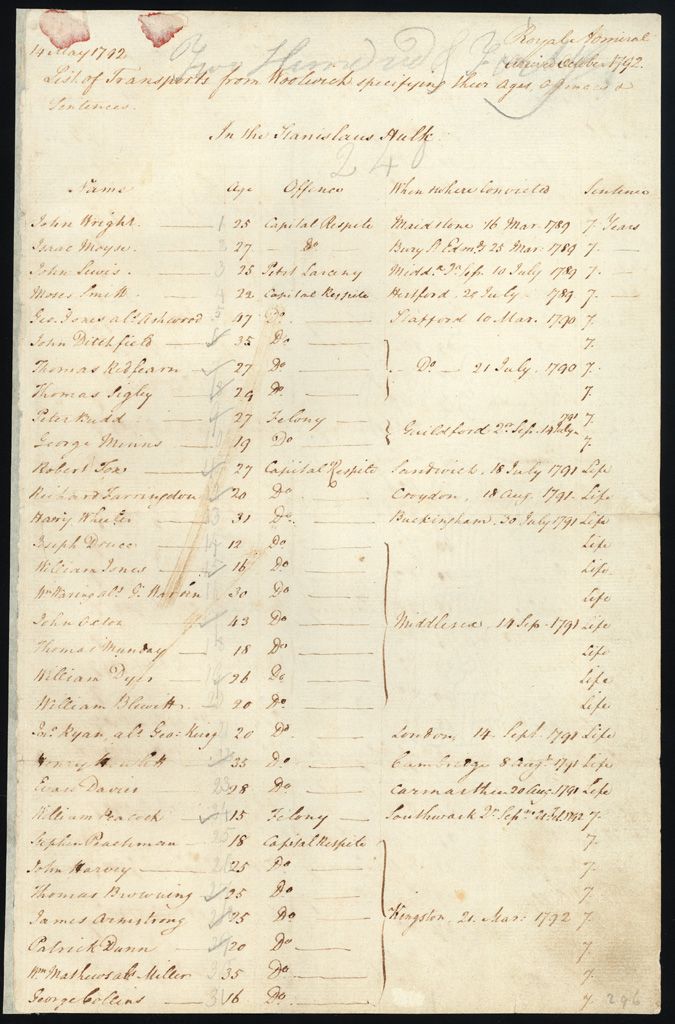 14 May 1792
Royal Admiral
October 1792.
List of Transports from Woolwich specifying their Ages, Offences &
Sentences.
In the Stanislaus Hulk.
24
Name Age Offence When & where Convicted Sentence
John Wright. 1 25 Capital Respite Maidstone 16 Mar. 1789 7. Years
Isaac Moyse. 27 Do Bury St Edmds 25 Mar. 1789 7.
John Lewis. 3 25 Petit Larceny Middx 10 July 1789 7.
Moses Smith 4 22 Capital Respite Hertford. 20 July. 1789 7.
Geo. Jones als Ashwood 5 47 Do Stafford 10 Mar. 1790 7.
John Ditchfield 35 Do 7.
Thomas Redfearn 27 Do Do 21 July, 1790 7.
Thomas Pigley 29 Do 7.
Peter Rudd 27 Felony 7.
George Means 19 Do Guildford 2d Sep. 14 July 791 7
Robert Fox 27 Capital Respite Sandwich. 18 July 1791 Life
Richard Farringdon 20 Do Croydon, 18 Aug. 1791 Life
Harry Wheeler 13 31 Do Buckingham. 30 July 1791 Life
Joseph Druce 14 12 Do Life
William Jones 16 Do Life
Wm Waring als 30 Do Life
John Acton 43 Do Middlesex, 14 Sep. 1791 Life
Thomas Munday 18 Do Life
William Dyer 26 Do Life
William Blewett 20 Do Life
Jas. Ryan, als Geo: King 20 Do London, 14. Sept. 1791 Life
Henry 35 Do Cambridge 8 Augt 1791 Life
Evan Davies 23 28 Do Carmarthen 20 Aug. 1791 Life
William Peacock 15 Felony Southwark 1792 7.
Stephen Peachman 25 18 Capital Respite 7.
John Harvey 25 Do 7.
Thomas Browning 25 Do 7.
James Armstrong 25 Do Kingston, 21. Mar: 1792 7.
Patrick Dunn 20 Do 7.
Wm Mathews als Miller 35 Do 7.
George Collins 31 16 Do 7.
296